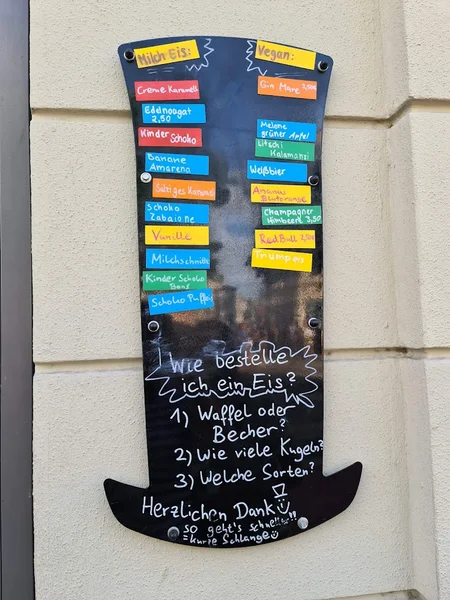 Milch Eis:
Creme Karamell
Edelnougat
2,50
Kinder
Schoko
Banane
Amarena
Salziges Karamell
Schoko
Zabaione
Vanille
Milchschnitte
Kinder Schoko
Bons
Schoko Puffies
Vegan:
Gin Mare 3,50€
Melone
grüner Apfel
Litschi
Kalamanzi
Weißbier
Ananas
Blutorange
Champagner
Himbeere 3,50
Red Bull 2,50
Wie bestelle
ich ein Eis?
1) Waffel oder
Becher?
2) Wie viele Kugeln?
3) Welche Sorten?
Herzlichen Dank
so geht's schneller!!
= kurze Schlange